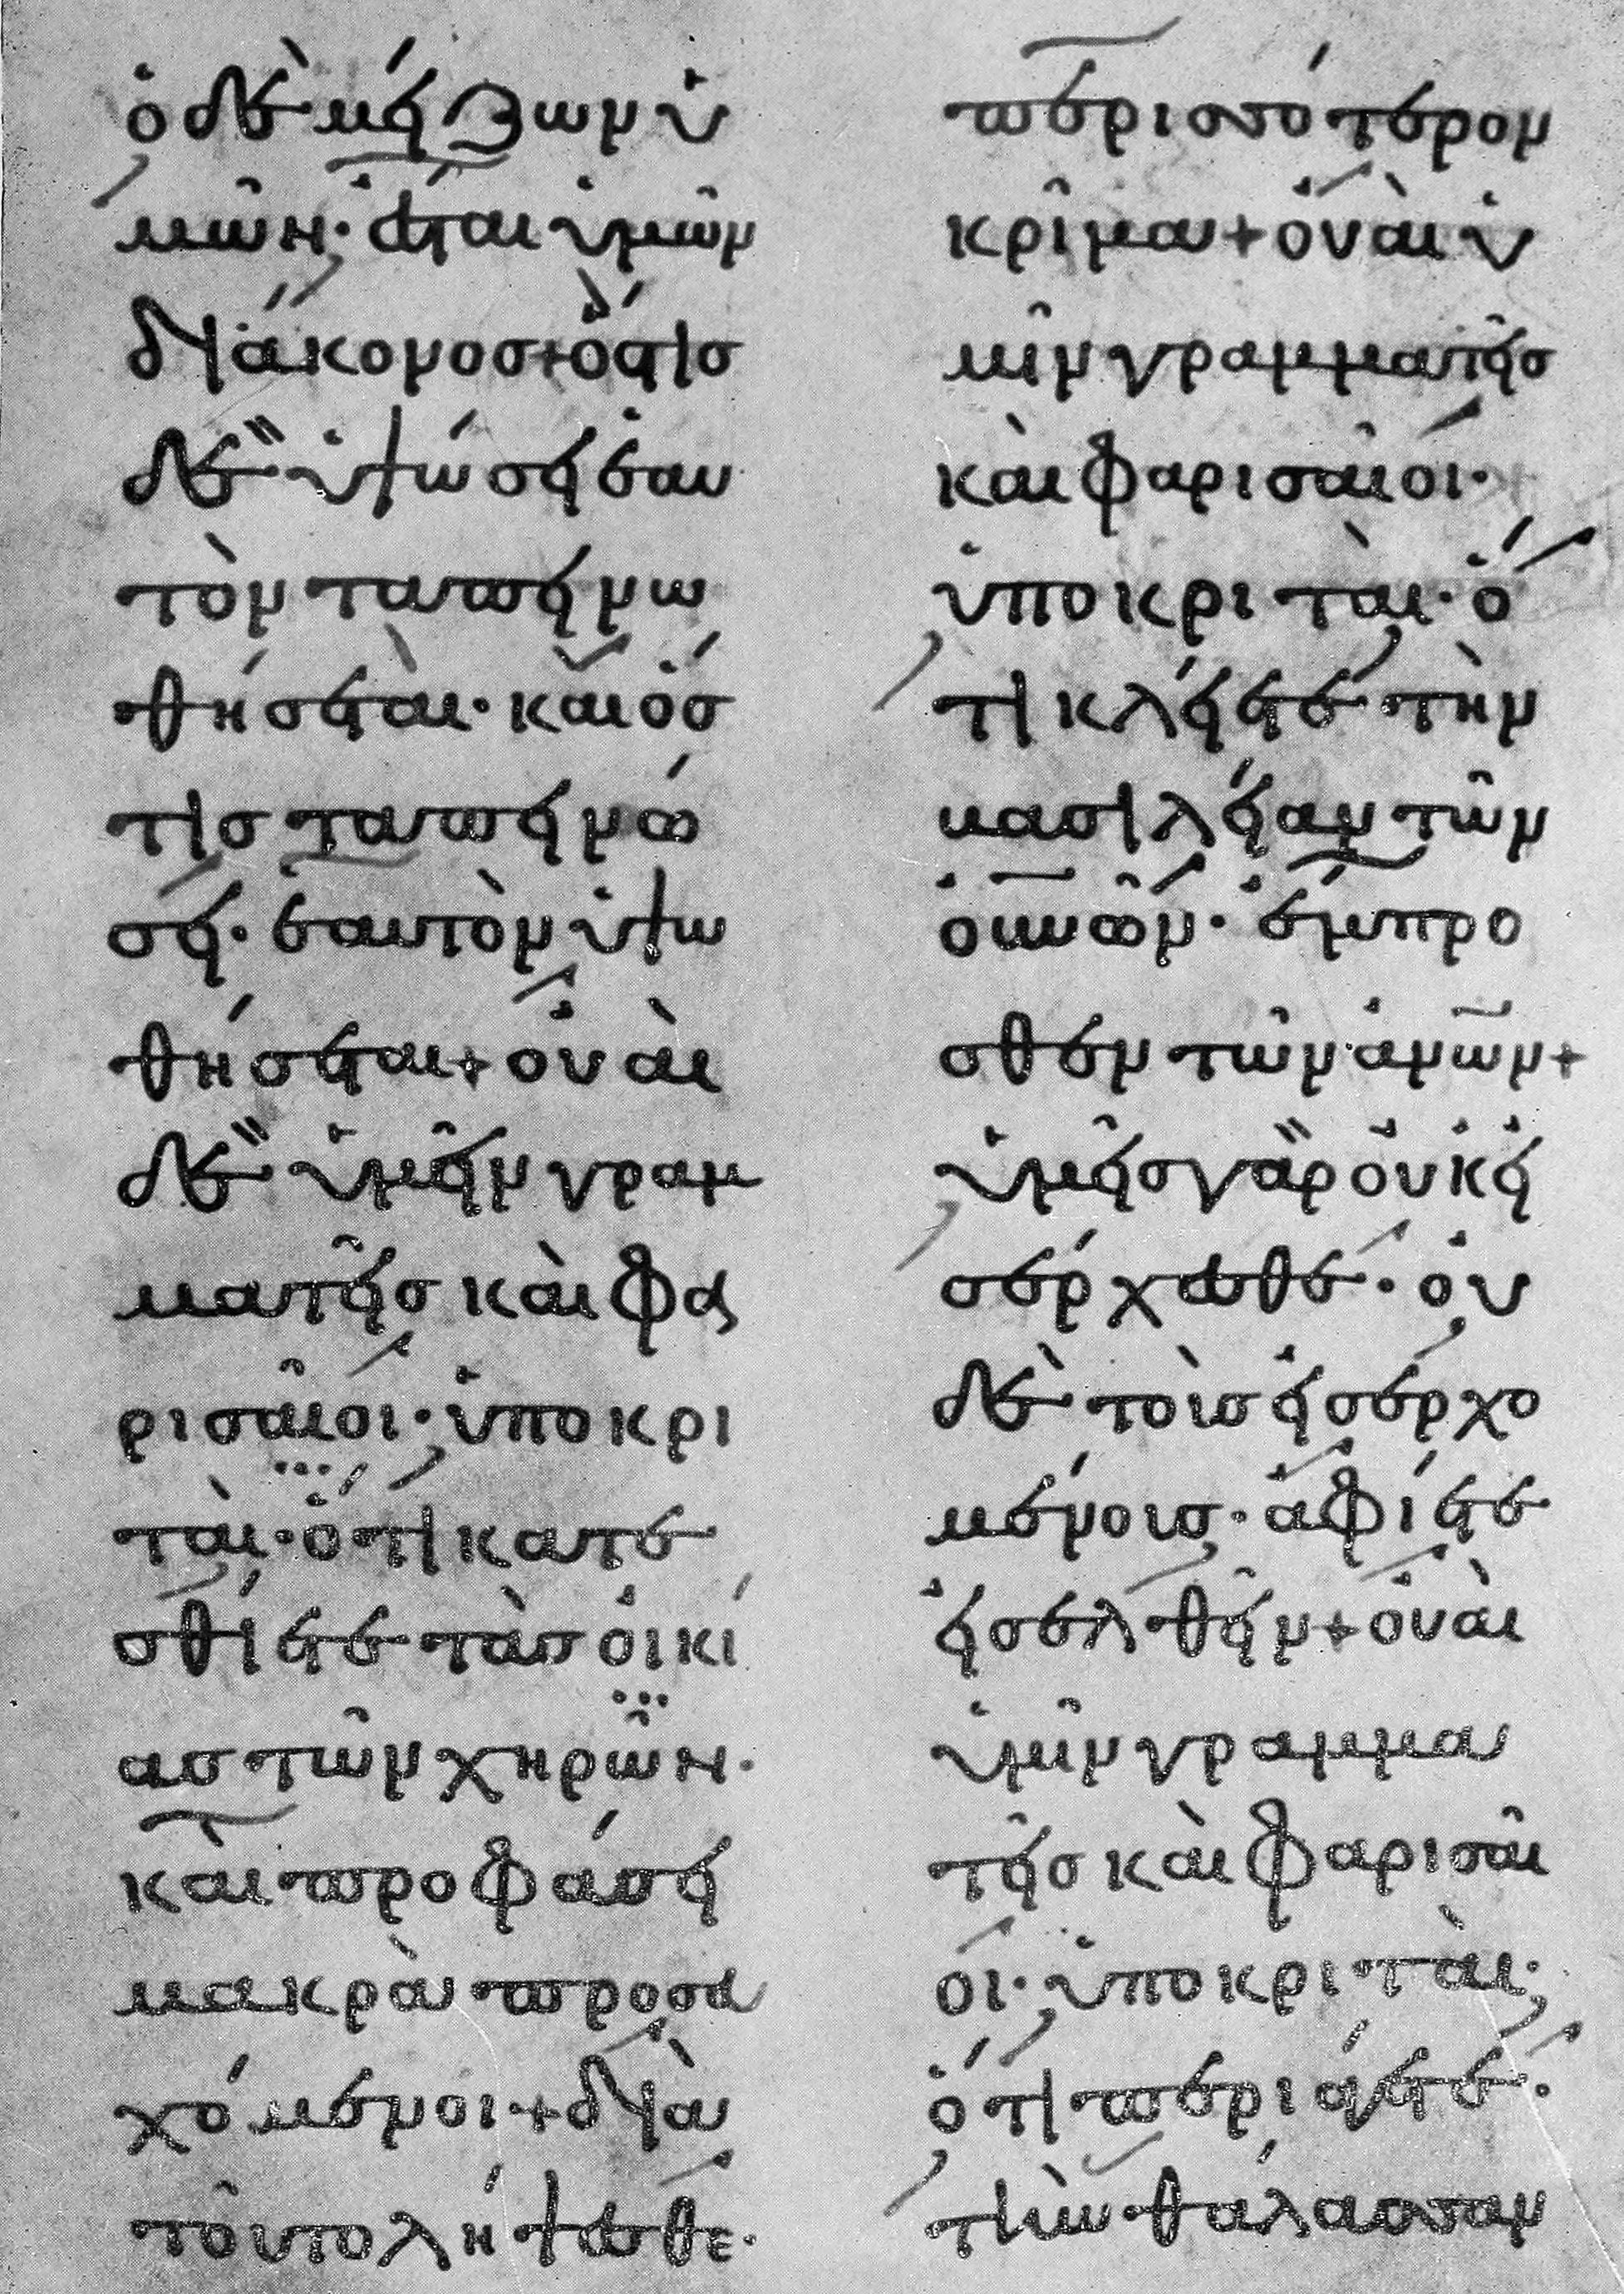 ὁ δὲ μείζων ὑ
μῶν· ἔσται ὑμῶν
διάκονος + ὅστις
δὲ ὑψώσει ἑαυ
τὸν ταπεινω
θήσεται· καὶ ὅσ
τις ταπεινώ
σει· ἑαυτὸν ὑψω
θήσεται + οὐαὶ
δὲ ὑμῖν γραμ
ματεῖς καὶ φα
ρισαῖοι· ὑποκρι
ταὶ· ὅτι κατε
σθίετε τὰς οἰκί
ας τῶν χηρῶν·
καὶ προφάσει
μακρὰ προσευ
χόμενοι + διὰ
τοῦτο λήψεσθε·
περισσότερον
κρῖμα + οὐαὶ ὑ
μῖν γραμματεῖς
καὶ φαρισαῖοι·
ὑποκριταὶ· ὅ
τι κλείετε τὴν
βασιλείαν τῶν
οὐνῶν· ἔμπρο
σθεν τῶν ἀνῶν +
ὑμεῖς γὰρ οὐκ εἰ
σέρχεσθε· οὐ
δὲ τοὺς εἰσερχο
μένους· ἀφίετε
εἰσελθεῖν + οὐαὶ
ὑμῖν γραμμα
τεῖς καὶ φαρισαῖ
οι· ὑποκριταὶ·
ὅτι περιάγετε·
τὴν θάλασσαν